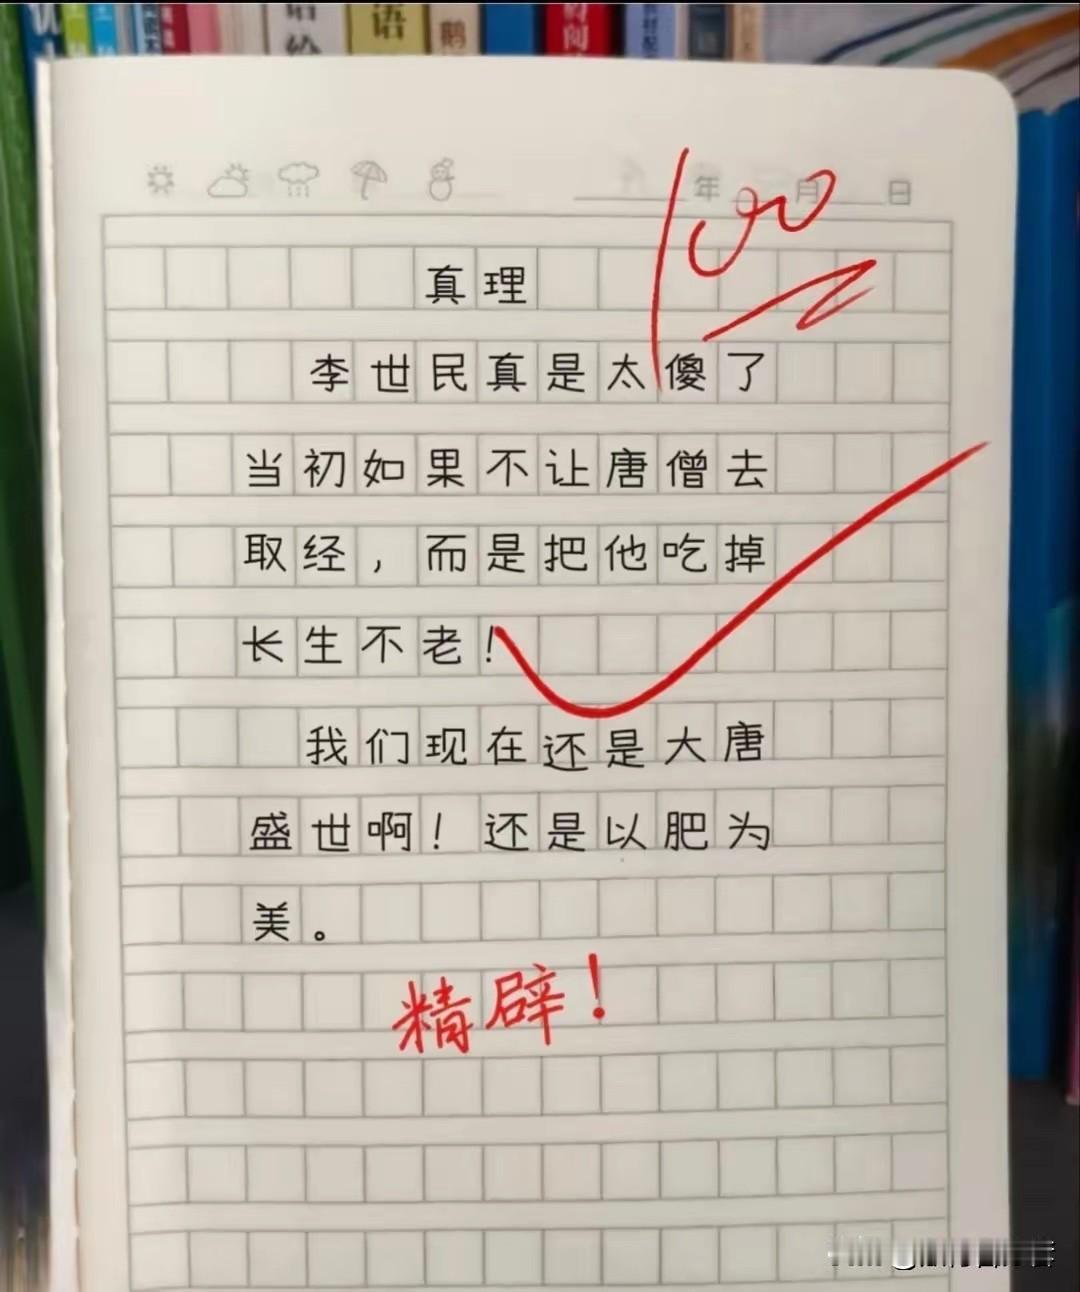 语
语
鹅
年 月 日
100
真理
李世民真是太傻了
当初如果不让唐僧去
取经，而是把他吃掉
长生不老！
我们现在还是大唐
盛世啊！还是以肥为
美。
精辟！